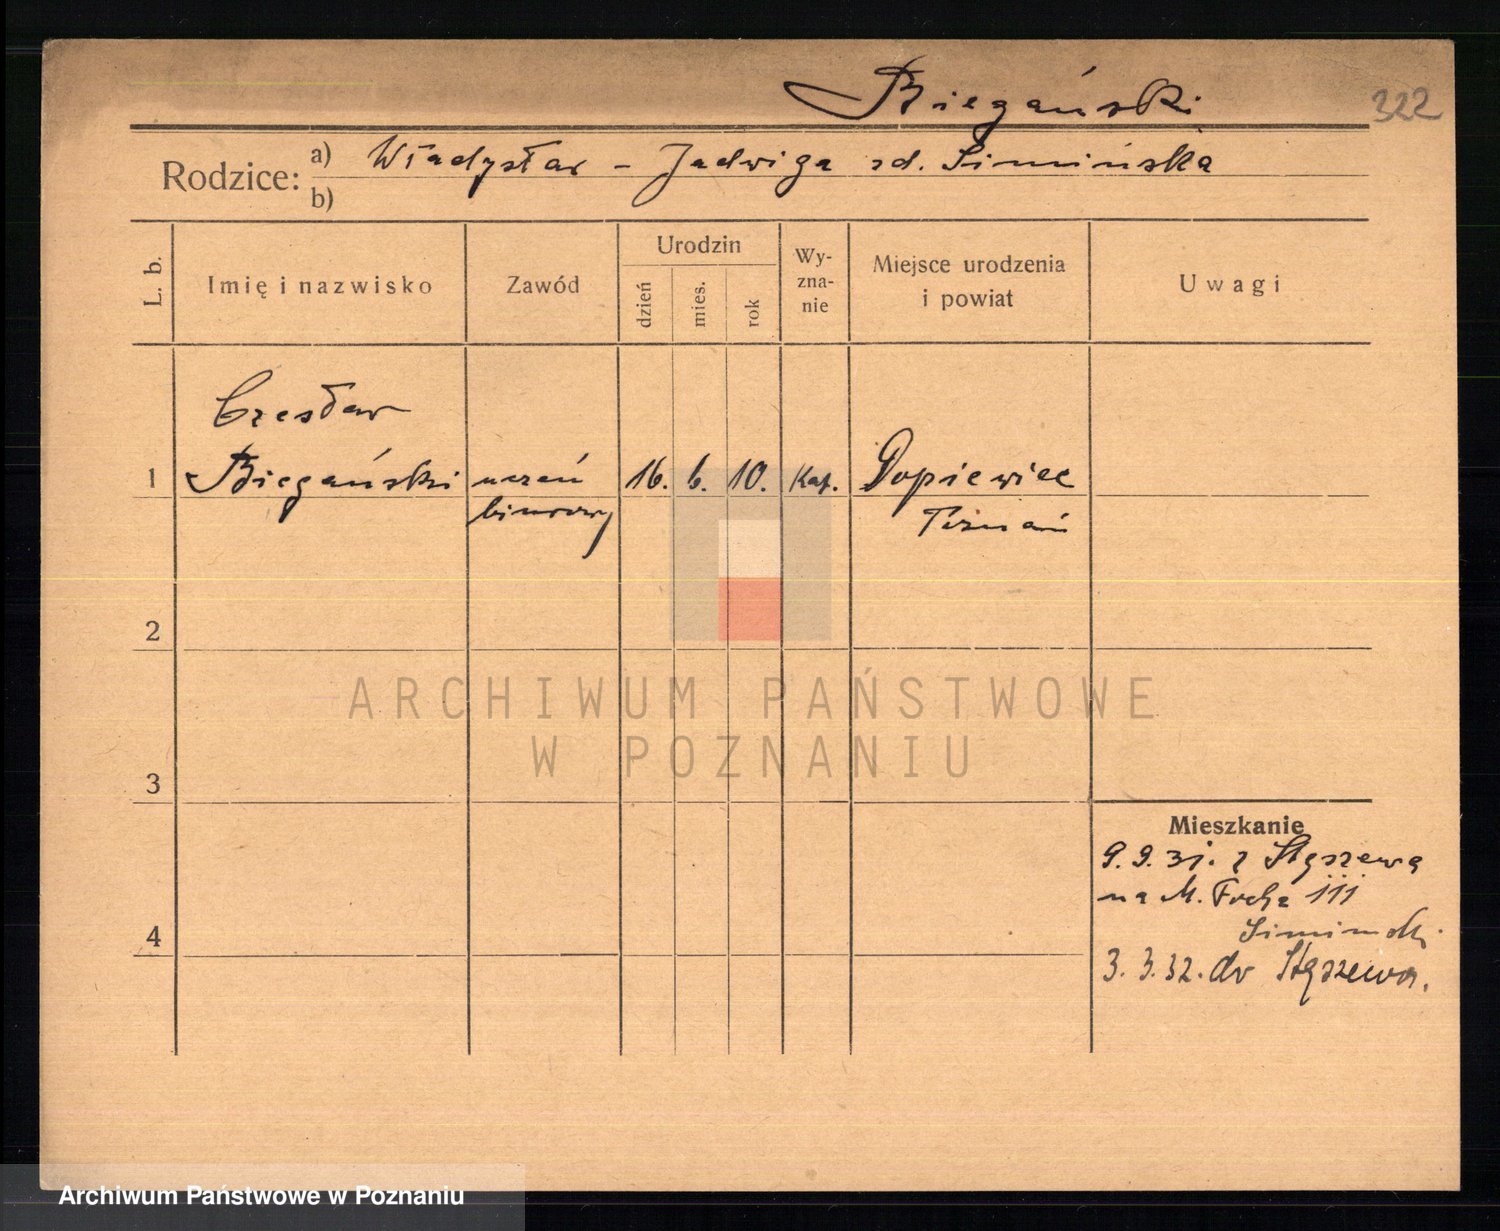 Biegański
322
Rodzice: a) Władysław - Jadwiga zd. Simińska
b)
L. b.
Imię i nazwisko
Zawód
Urodzin
dzień
mies.
rok
Wy-
zna-
nie
Miejsce urodzenia
i powiat
Uwagi
Czesław
1 Biegański uczeń 16. 6. 10. Kat. Dopiewiec
biurowy Poznań
2
3
4
ARCHIWUM PAŃSTWOWE
W POZNANIU
Mieszkanie
9. 9. 31. z Stęszewa
na M. Focha 111
Simiński.
3. 3. 32. do Stęszewa.
Archiwum Państwowe w Poznaniu